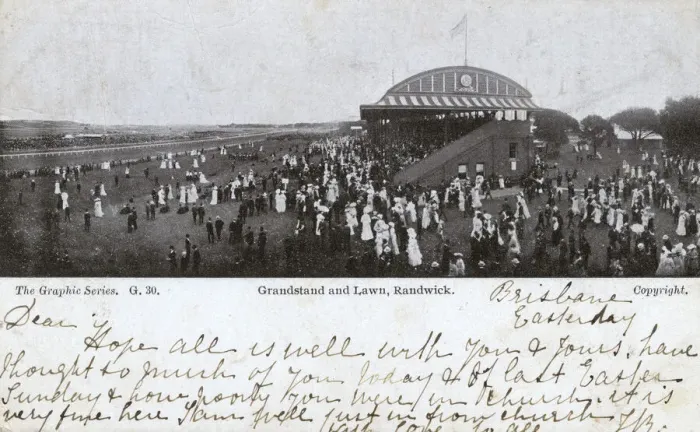 The Graphic Series. G. 30.
Grandstand and Lawn, Randwick.
Copyright.
Brisbane
Easterday
Dear
Hope all is well with you & yours, have
thought so much of you today & of last Easter
Sunday & how poorly you were in church it is
very fine here I am well just in from church
love to all